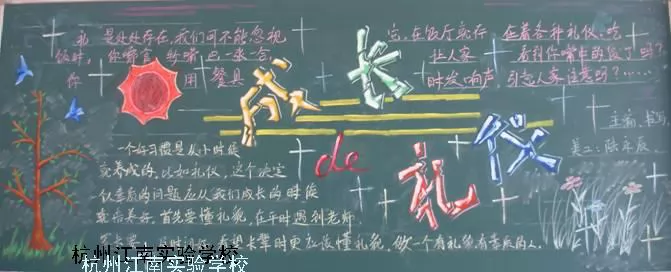 礼是处处存在,我们可不能忽视
它,在饭厅就存在着各种礼仪,吃
饭时,你嘴
看到你嘴
你用餐具时发响声引起人家注意吗?……
成长
de
礼仪
主编、书写
美工:陈
一个好习惯是从小时候
就养成的,比如礼仪,这个决定
你素质的问题应从我们成长的时候
要培养好,首先要懂礼貌,在平时遇到老师
长辈时更应该懂礼貌,做一个有礼貌有素质的人。
杭州江南实验学校
杭州江南实验学校